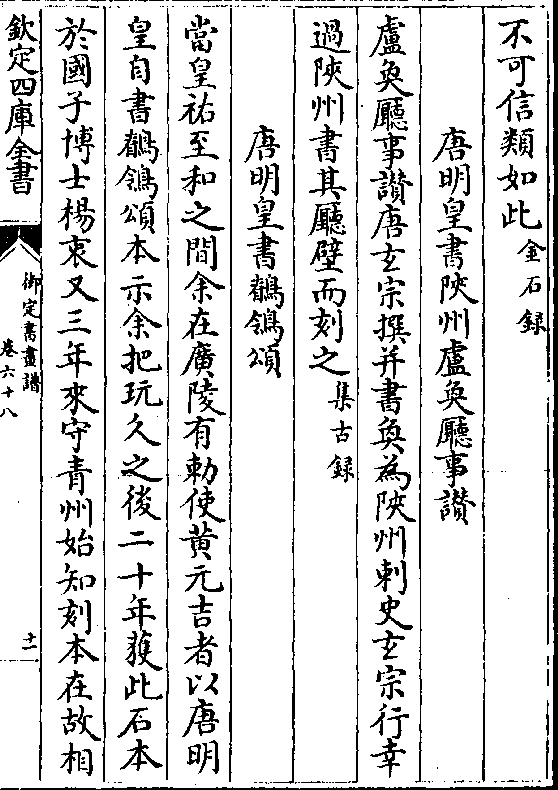 不可信類如此金石録
唐明皇書陜州盧奐廳事讃
盧奐廳事讃唐玄宗撰并書奐為陜州刺史玄宗行幸
過陜州書其廳壁而刻之集古録
唐明皇書鶺鴒頌
當皇祐至和之間余在廣陵有勅使黄元吉者以唐明
皇自書鶺鴒頌本示余把玩久之後二十年獲此石本
於國子博士楊衷又三年來守青州始知刻本在故相
欽定四庫全書
御定書畫譜
卷六十八
十一